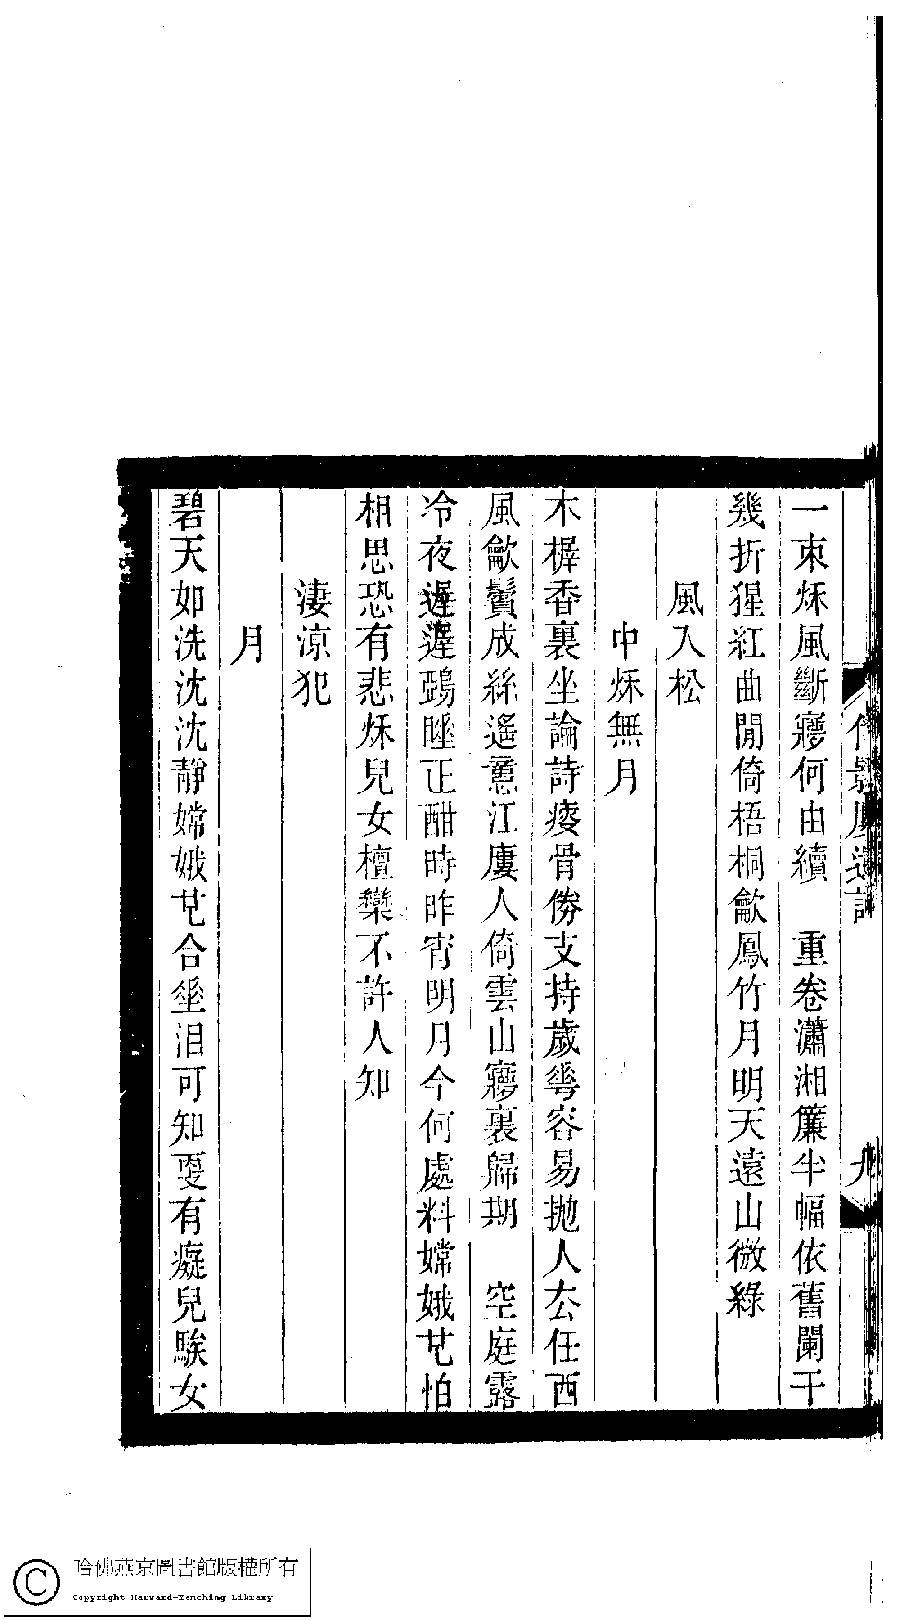 一束秌風斷㝱何由續　重卷瀟湘簾半幅依舊闌干
幾折猩紅曲閒倚梧桐歗鳳竹月明天遠山微綠
風入松
中秌無月
木樨香裏坐論詩瘦骨傍支持歲華容易拋人厺任西
風歗鬢成絲遙憶江廔人倚雲山㝱裏歸期　空庭露
冷夜遲遲鵶睡正酣時昨宵明月今何處料嫦娥芑怕
相思恐有悲秌兒女檀欒不許人知
淒涼犯
月
碧天如洗沈沈靜嫦娥芑合垂泪可知更有癡兒騃女
九
哈佛燕京圖書館版權所有
Copyright Harvard-Yenching Library